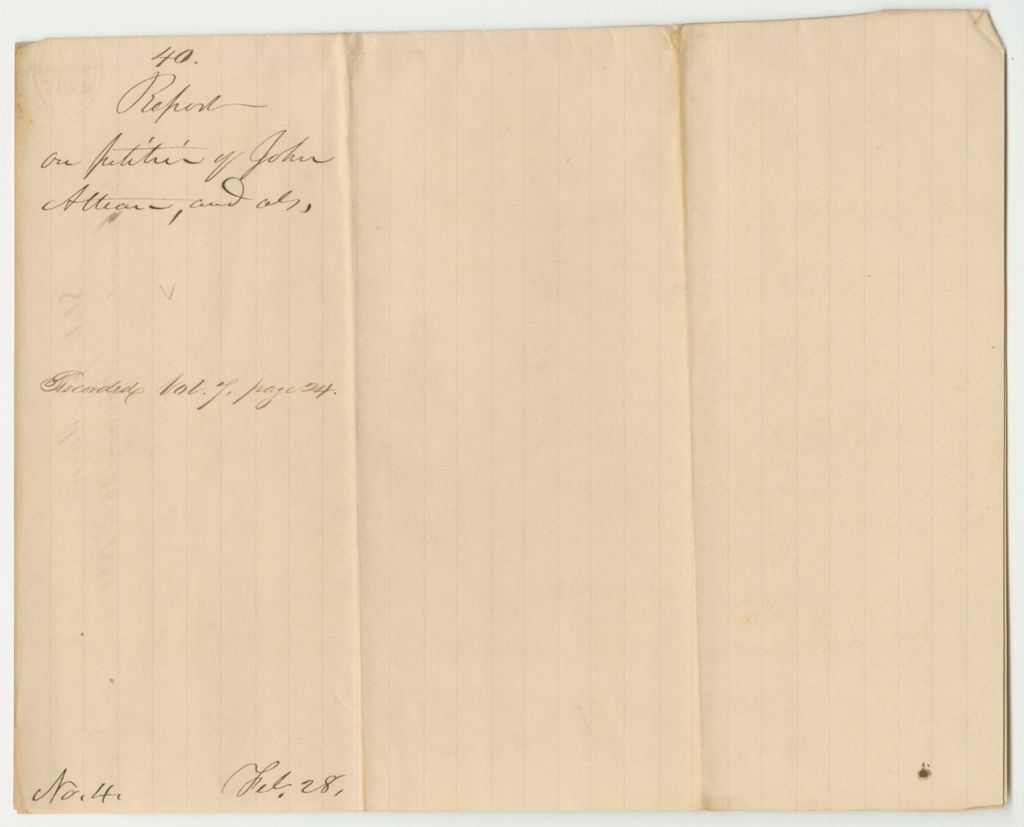 40.
Report
on petition of John
Attean, and als,
Recorded Vol. 7. page 24.
No. 4.
Feb. 28,